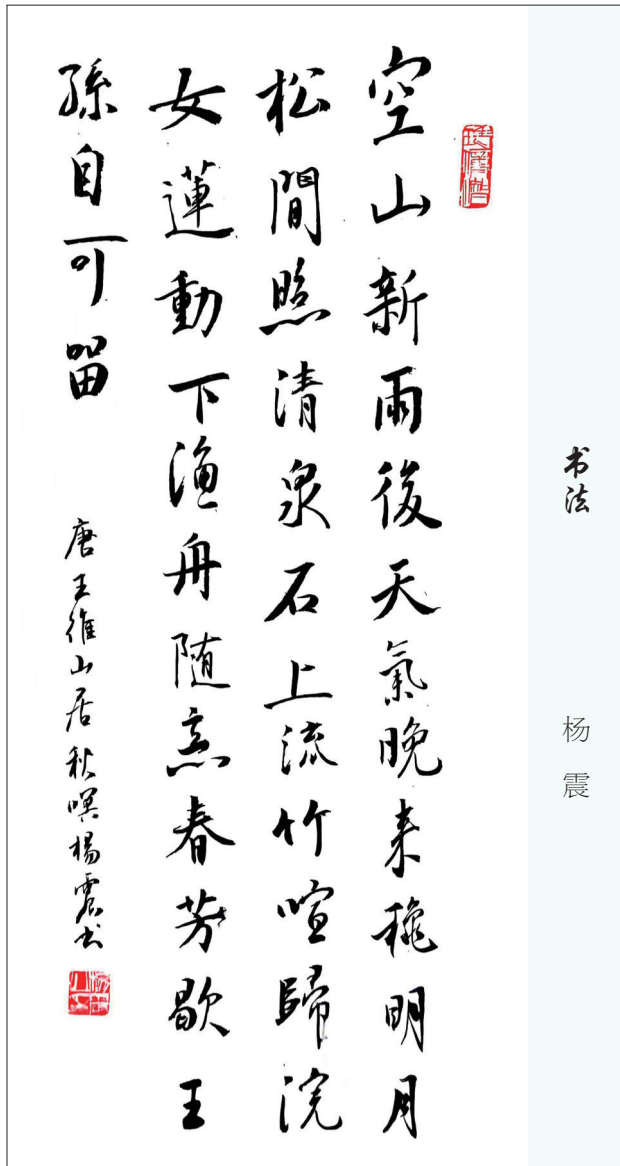 空山新雨後天氣晚来穐明月
松間照清泉石上流竹喧歸浣
女蓮動下渔舟随意春芳歇王
孫自可留
唐王維山居秋暝楊震书
书法
杨震